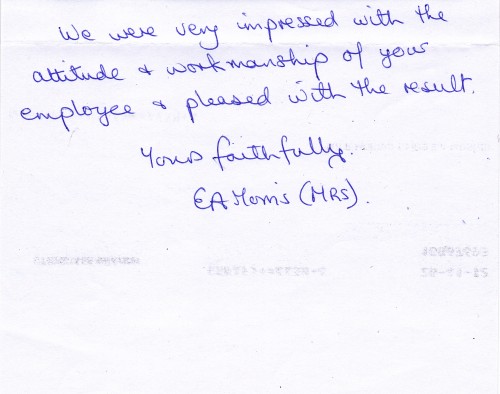 We were very impressed with the
attitude & workmanship of your
employee & pleased with the result.
Yours faithfully.
EA Morris (MRS).